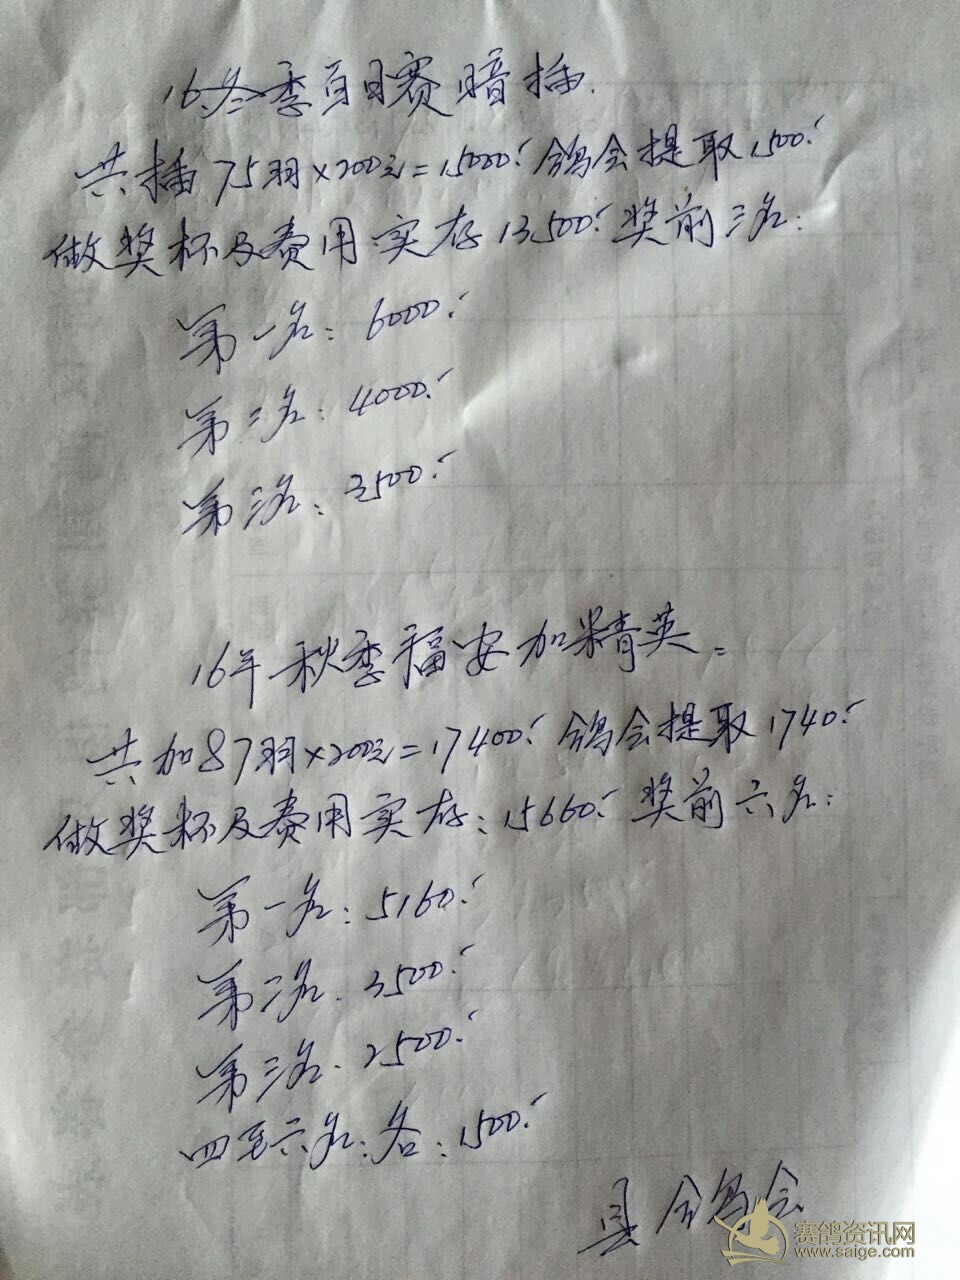 16冬季百日赛暗插.
共插75羽×200元=15000.鸽会提取1500.
做奖杯及费用实存13500.奖前三名:
第一名:6000.
第二名:4000.
第三名:3500.
16年秋季福安加精英=
共加87羽×200元=17400.鸽会提取1740.
做奖杯及费用实存:15660.奖前六名:
第一名:5160.
第二名.3500.
第三名.2500.
四至六名:各:1500.
县鸽会
赛鸽资讯网
www.saige.com